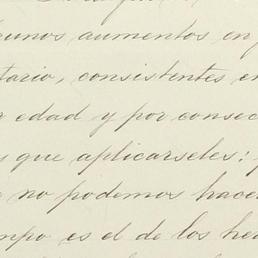 gunos aumentos en
tario, consistentes en
edad y por consec
que aplicarseles:
no podemos hacer
mpo es el de los he